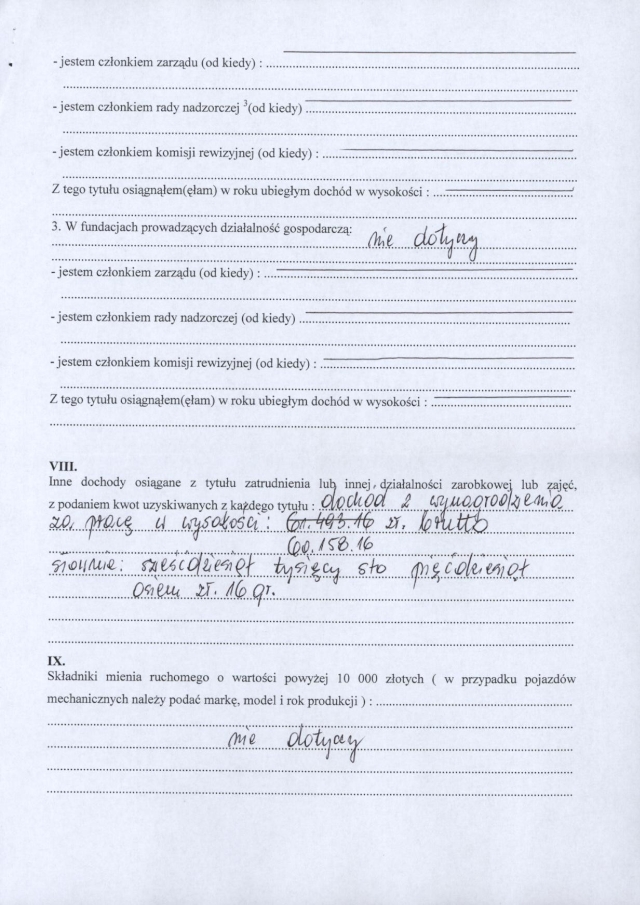 - jestem członkiem zarządu (od kiedy) :
- jestem członkiem rady nadzorczej ³(od kiedy)
- jestem członkiem komisji rewizyjnej (od kiedy) :
Z tego tytułu osiągnąłem(ęłam) w roku ubiegłym dochód w wysokości :
3. W fundacjach prowadzących działalność gospodarczą: nie dotyczy
- jestem członkiem zarządu (od kiedy) :
- jestem członkiem rady nadzorczej (od kiedy)
- jestem członkiem komisji rewizyjnej (od kiedy) :
Z tego tytułu osiągnąłem(ęłam) w roku ubiegłym dochód w wysokości :
VIII.
Inne dochody osiągane z tytułu zatrudnienia lub innej działalności zarobkowej lub zajęć,
z podaniem kwot uzyskiwanych z każdego tytułu : dochód z wynagrodzenia
za pracę w wysokości: 61.493.16 zł. brutto
60.158.16
słownie: sześćdziesiąt tysięcy sto pięćdziesiąt
osiem zł. 16 gr.
IX.
Składniki mienia ruchomego o wartości powyżej 10 000 złotych ( w przypadku pojazdów
mechanicznych należy podać markę, model i rok produkcji ) :
nie dotyczy